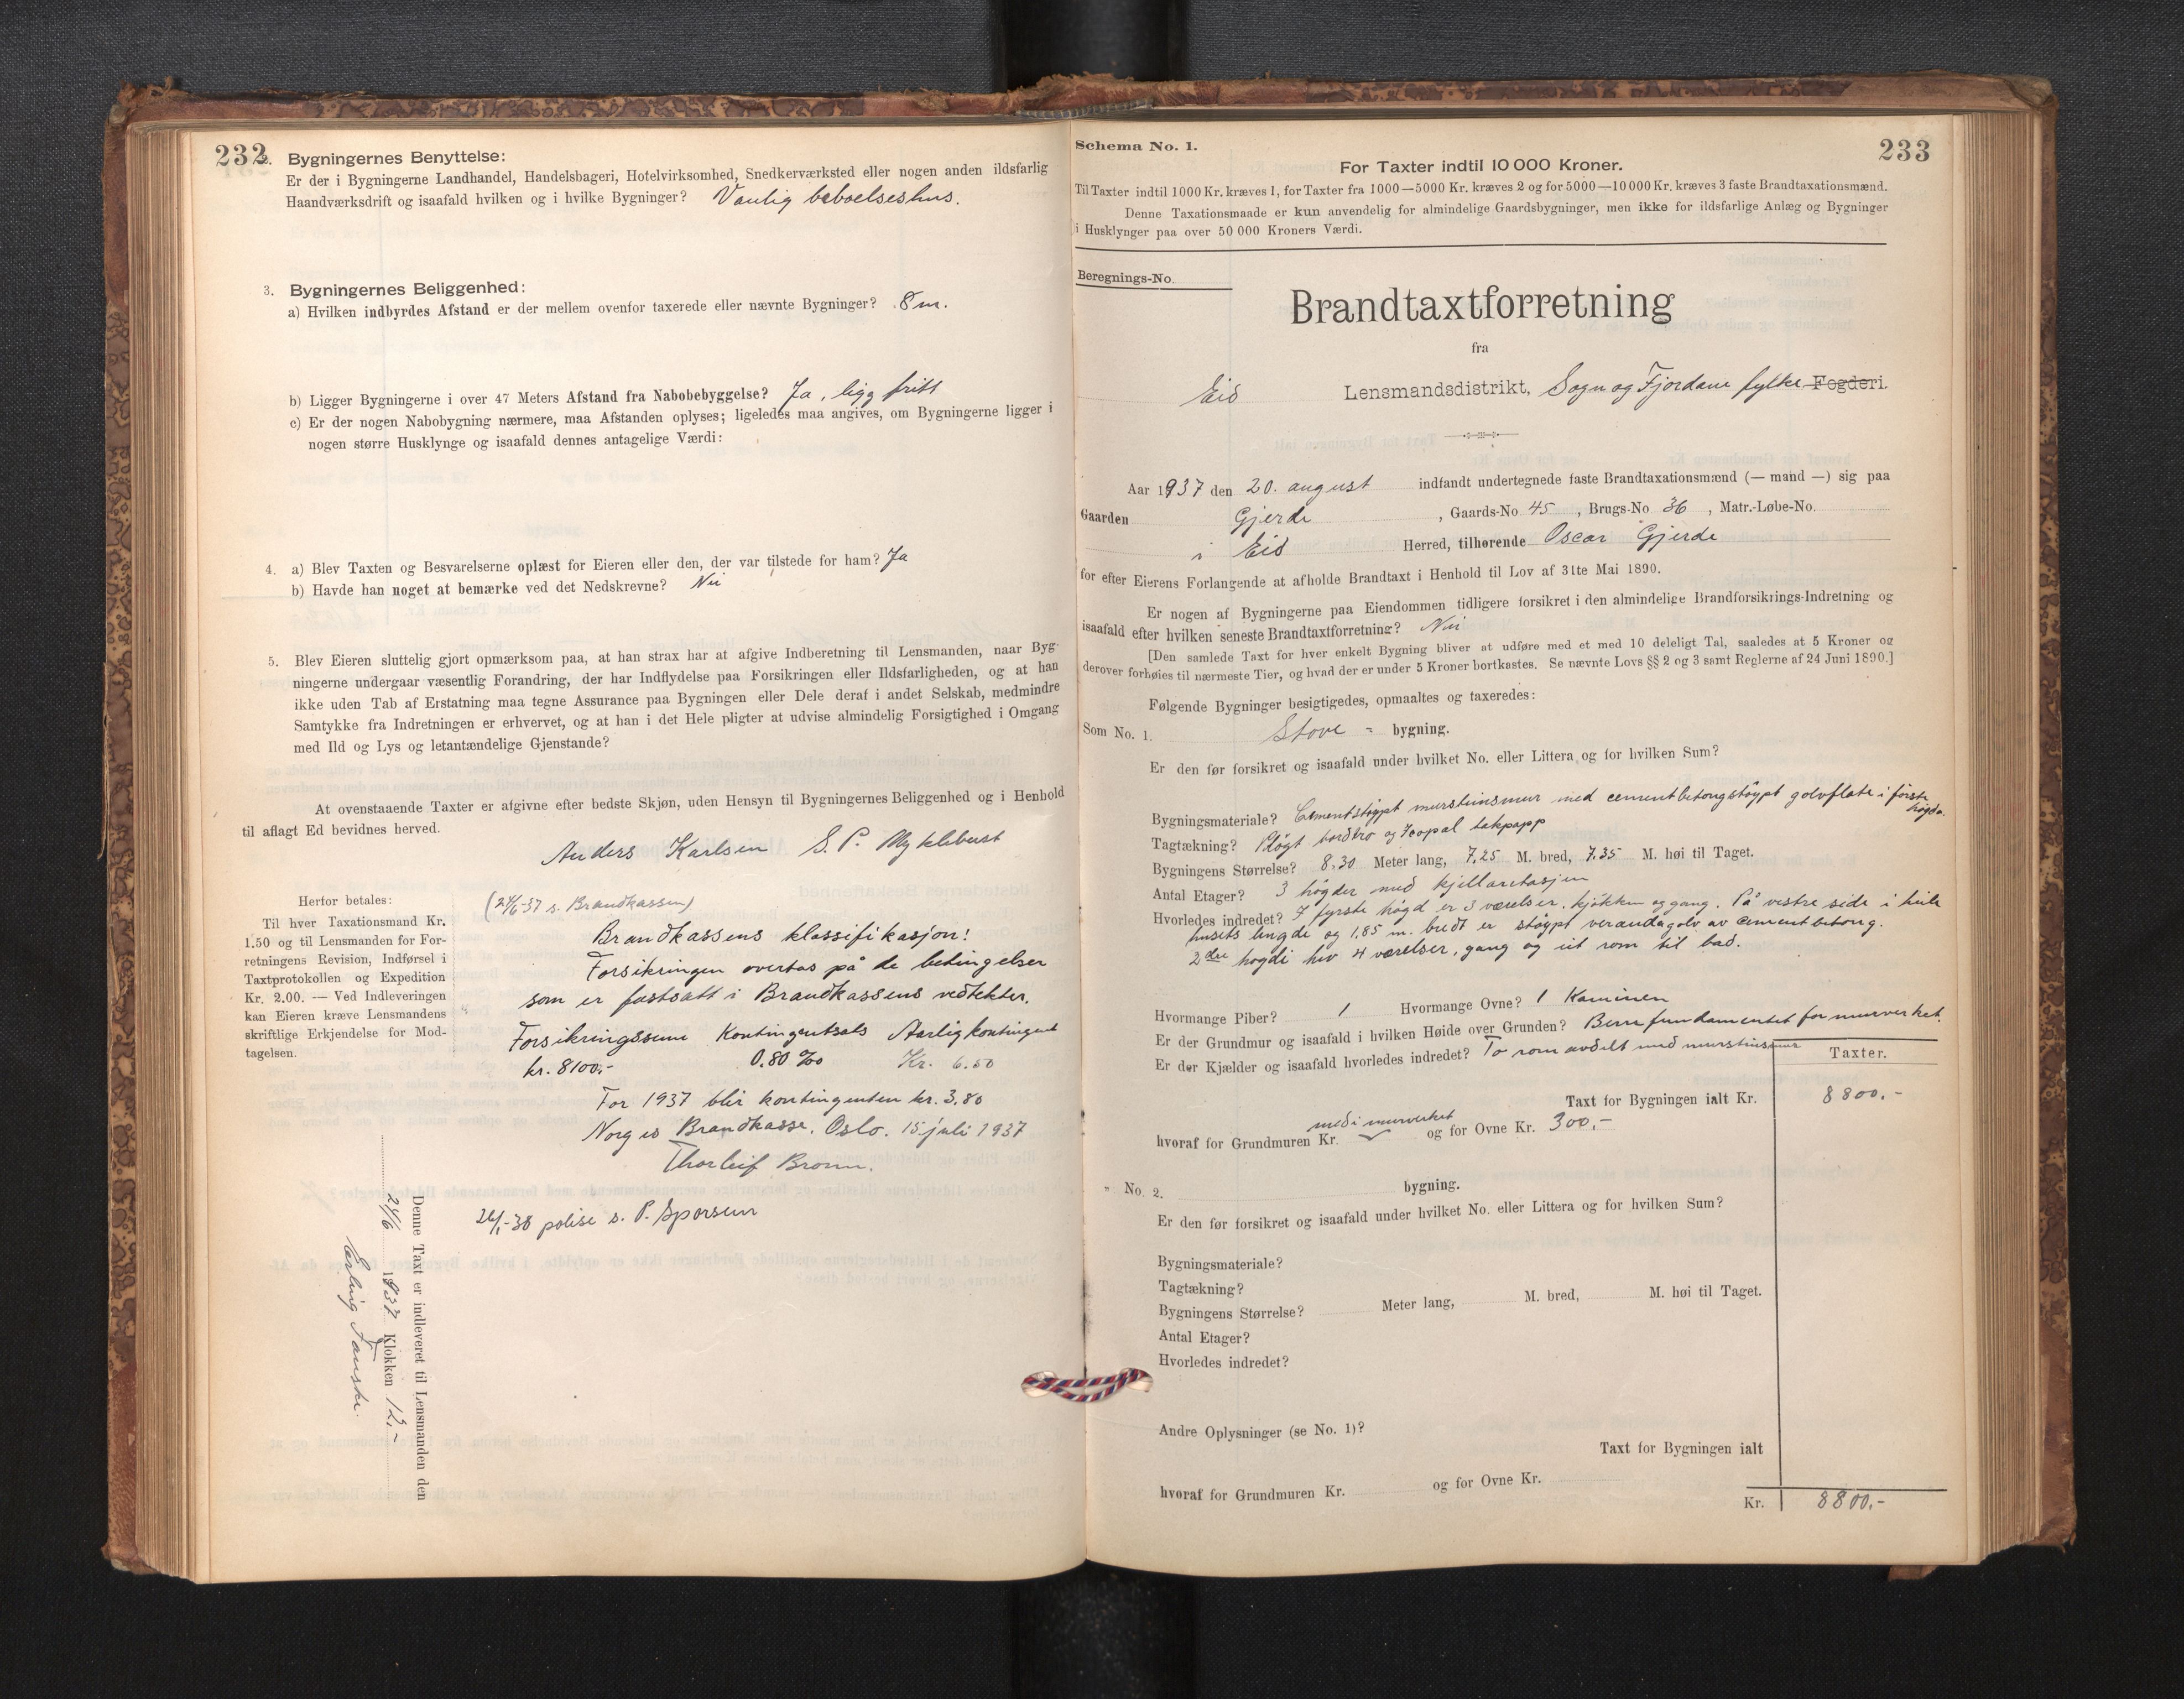 232
2. Bygningernes Benyttelse:
Er der i Bygningerne Landhandel, Handelsbageri, Hotelvirksomhed, Snedkerværksted eller nogen anden ildsfarlig
Haandværksdrift og isaafald hvilken og i hvilke Bygninger? Vanlig beboelseshus.
3. Bygningernes Beliggenhed:
a) Hvilken indbyrdes Afstand er der mellem ovenfor taxerede eller nævnte Bygninger? 8 m.
b) Ligger Bygningerne i over 47 Meters Afstand fra Nabobebyggelse? Ja, ligg fritt
c) Er der nogen Nabobygning nærmere, maa Afstanden oplyses; ligeledes maa angives, om Bygningerne ligger i
nogen større Husklynge og isaafald dennes antagelige Værdi:
4. a) Blev Taxten og Besvarelserne oplæst for Eieren eller den, der var tilstede for ham? Ja
b) Havde han noget at bemærke ved det Nedskrevne? Nei
5. Blev Eieren sluttelig gjort opmærksom paa, at han strax har at afgive Indberetning til Lensmanden, naar Byg-
ningerne undergaar væsentlig Forandring, der har Indflydelse paa Forsikringen eller Ildsfarligheden, og at han
ikke uden Tab af Erstatning maa tegne Assurance paa Bygningen eller Dele deraf i andet Selskab, medmindre
Samtykke fra Indretningen er erhvervet, og at han i det Hele pligter at udvise almindelig Forsigtighed i Omgang
med Ild og Lys og letantændelige Gjenstande?
At ovenstaaende Taxter er afgivne efter bedste Skjøn, uden Hensyn til Bygningernes Beliggenhed og i Henhold
til aflagt Ed bevidnes herved.
Anders Karlsen S. P. Myklebust
Herfor betales:
Til hver Taxationsmand Kr.
1.50 og til Lensmanden for For-
retningens Revision, Indførsel i
Taxtprotokollen og Expedition
Kr. 2.00. — Ved Indleveringen
kan Eieren kræve Lensmandens
skriftlige Erkjendelse for Mod-
tagelsen.
(24/6-37 s. Brandkassen)
Brandkassens klassifikasjon:
Forsikringen overtas på de betingelser
som er fastsatt i Brandkassens vedtekter.
Forsikringssum Kontingentsats Aarlig kontingent
kr. 8100,- 0.80 ‰ Kr. 6.50
For 1937 blir kontingenten kr. 3,80
Norges Brandkasse, Oslo. 15 juli 1937
Thorleif Bronn.
26/1-38 polise s. P. Sporsem
Denne Taxt er indleveret til Lensmanden den
24/6 1937 Klokken 12,-
Erling
233
Schema No. 1.
For Taxter indtil 10 000 Kroner.
Til Taxter indtil 1000 Kr. kræves 1, for Taxter fra 1000—5000 Kr. kræves 2 og for 5000—10 000 Kr. kræves 3 faste Brandtaxationsmænd.
Denne Taxationsmaade er kun anvendelig for almindelige Gaardsbygninger, men ikke for ildsfarlige Anlæg og Bygninger
i Husklynger paa over 50 000 Kroners Værdi.
Beregnings-No.
Brandtaxtforretning
fra
Eid Lensmandsdistrikt, Sogn og Fjordane fylke Fogderi.
Aar 1937 den 20. august indfandt undertegnede faste Brandtaxationsmænd (— mand —) sig paa
Gaarden Gjerde, Gaards-No 45, Brugs-No 36, Matr.-Løbe-No.
i Eid Herred, tilhørende Oscar Gjerde
for efter Eierens Forlangende at afholde Brandtaxt i Henhold til Lov af 31te Mai 1890.
Er nogen af Bygningerne paa Eiendommen tidligere forsikret i den almindelige Brandforsikrings-Indretning og
isaafald efter hvilken seneste Brandtaxtforretning? Nei
[Den samlede Taxt for hver enkelt Bygning bliver at udføre med et med 10 deleligt Tal, saaledes at 5 Kroner og
derover forhøies til nærmeste Tier, og hvad der er under 5 Kroner bortkastes. Se nævnte Lovs §§ 2 og 3 samt Reglerne af 24 Juni 1890.]
Følgende Bygninger besigtigedes, opmaaltes og taxeredes:
Som No. 1. Stove - bygning.
Er den før forsikret og isaafald under hvilket No. eller Littera og for hvilken Sum?
Bygningsmateriale? Cementstøypt murstinsmur med cementbetongstøypt golvflate i første høgda.
Tagtækning? Pløgt bordtro og Icopal takpapp
Bygningens Størrelse? 8,30 Meter lang, 7,25 M. bred, 7,35 M. høi til Taget.
Antal Etager? 3 høgder med kjellaretasjen
Hvorledes indredet? I fyrste høgd er 3 værelser, kjøkken og gang. På vestre side i heile
husets lengde og 1,85 m. bredt er støypt verandagolv av cementbetong.
2dre høgdi hev 4 værelser, gang og eit rom til bad.
Hvormange Piber? 1 Hvormange Ovne? 1 Kaminen
Er der Grundmur og isaafald i hvilken Høide over Grunden? Berre fundamentet for murverket.
Er der Kjælder og isaafald hvorledes indredet? To rom avdelt med murstinsmur
Taxter.
Taxt for Bygningen ialt Kr. 8800,-
med i murverket
hvoraf for Grundmuren Kr. og for Ovne Kr. 300,-
" No. 2. bygning.
Er den før forsikret og isaafald under hvilket No. eller Littera og for hvilken Sum?
Bygningsmateriale?
Tagtækning?
Bygningens Størrelse? Meter lang, M. bred, M. høi til Taget.
Antal Etager?
Hvorledes indredet?
Andre Oplysninger (se No. 1)?
Taxt for Bygningen ialt
hvoraf for Grundmuren Kr. og for Ovne Kr.
Kr. 8800,-